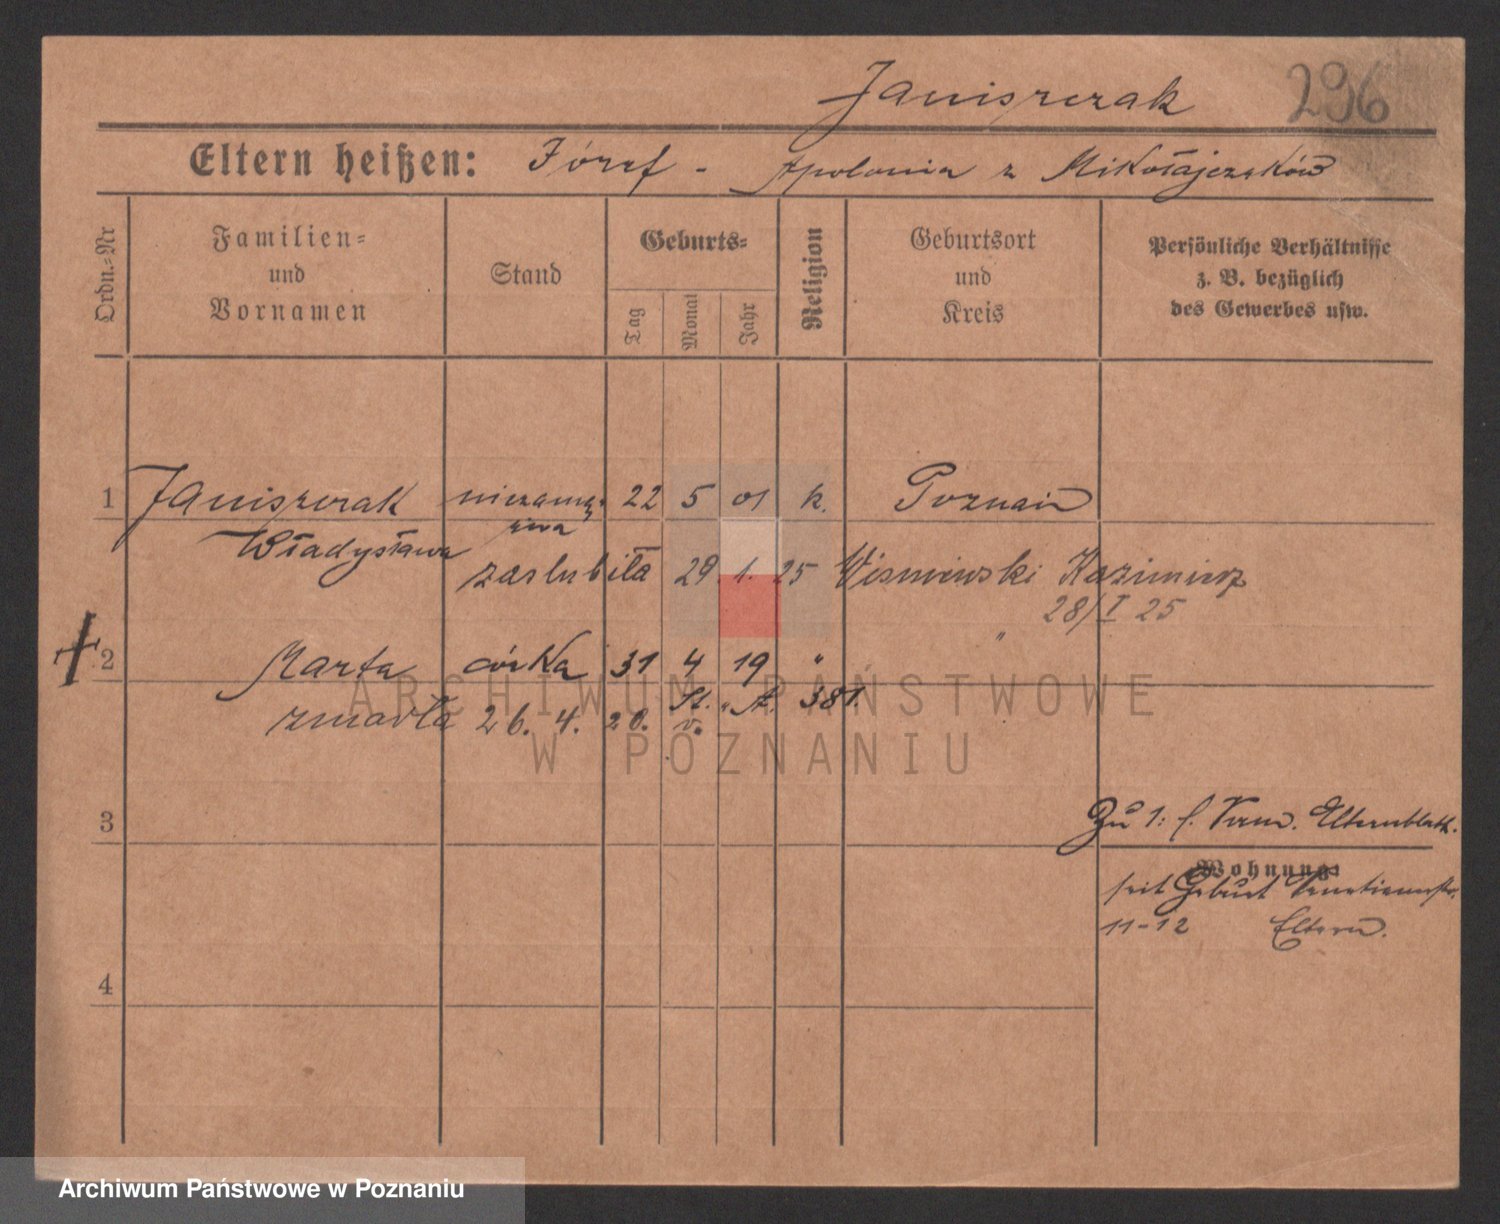 Janiszczak 296
Eltern heißen: Józef - Apolonia z Mikołajczaków
Ordn.-Nr
Familien-
und
Vornamen
Stand
Geburts-
Tag
Monat
Jahr
Religion
Geburtsort
und
Kreis
Persönliche Verhältnisse
z. B. bezüglich
des Gewerbes usw.
1 Janiszczak niezamę- 22 5 01 k. Poznań
Władysława żna
zaslubiła 29. 1. 25 Wisniewski Kazimierz
28/I 25
2 Marta córka 31 4 19 " "
zmarła 26. 4. 20. St. A. 381.
v.
ARCHIWUM PAŃSTWOWE
W POZNANIU
3
Zu 1: s. Verm. Elternblatt.
Wohnung:
seit Geburt Venetianerstr.
11-12 Eltern.
4
Archiwum Państwowe w Poznaniu